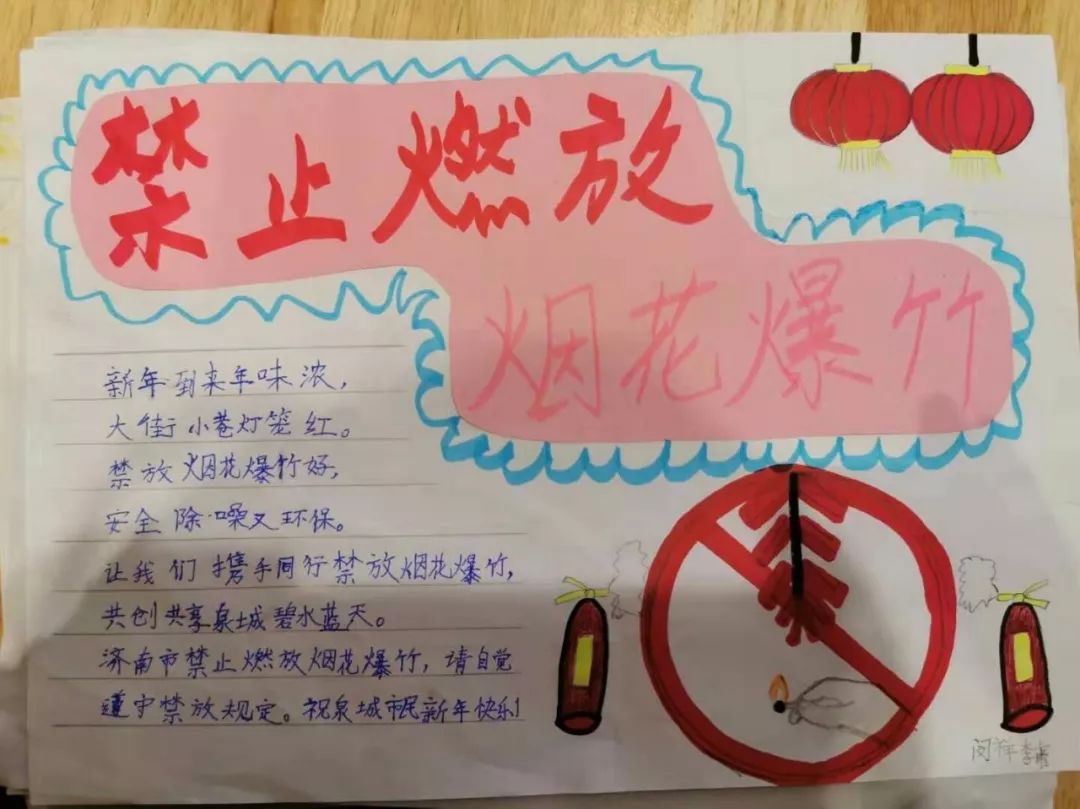 禁止燃放
烟花爆竹
新年到来年味浓，
大街小巷灯笼红。
禁放烟花爆竹好，
安全除噪又环保。
让我们携手同行禁放烟花爆竹，
共创共享泉城碧水蓝天。
济南市禁止燃放烟花爆竹，请自觉
遵守禁放规定。祝泉城市民新年快乐！